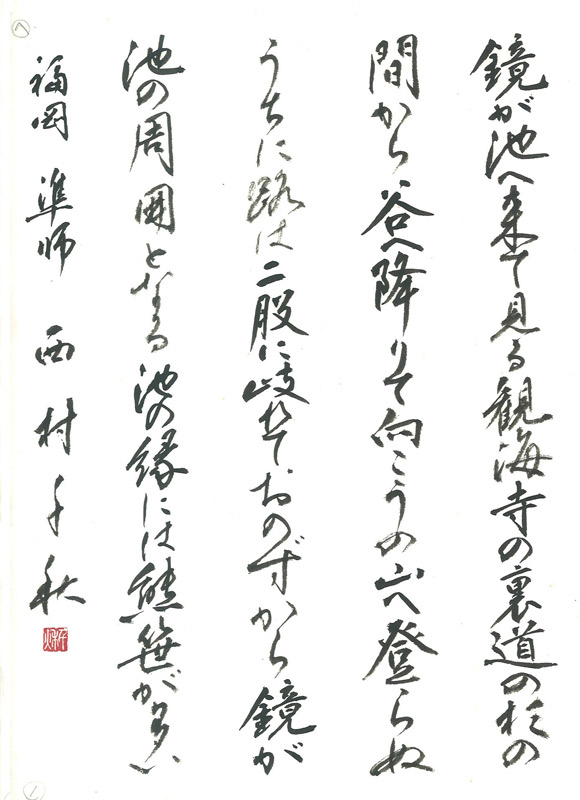 鏡が池へ来て見る観海寺の裏道の杉の
間から谷へ降りて向こうの山へ登らぬ
うちに路は二股に岐れておのずから鏡が
池の周囲となる池の縁には熊笹が多い
福岡 準師 西村千秋
千秋